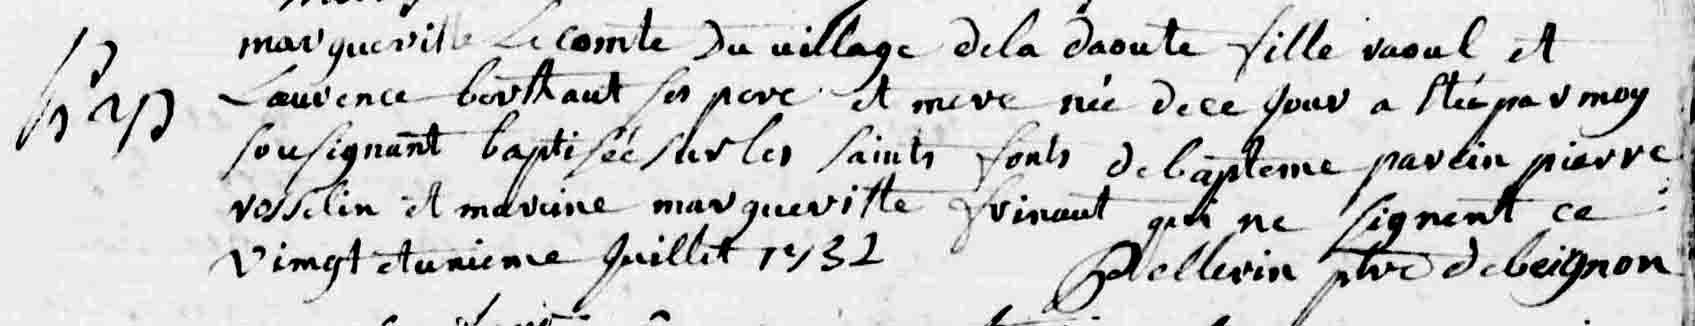 marguerite Lecomte Du village dela daoute fille raoul et
Laurence berthaut ses pere et mere née dece jour a stéparmoy
sousignant baptisée sur les saints fonts de bapteme parein pierre
rosselin et mareine margueritte frinaut qui ne signent ce
vingt etunieme juillet 1732
Pellerin ptre de beignon